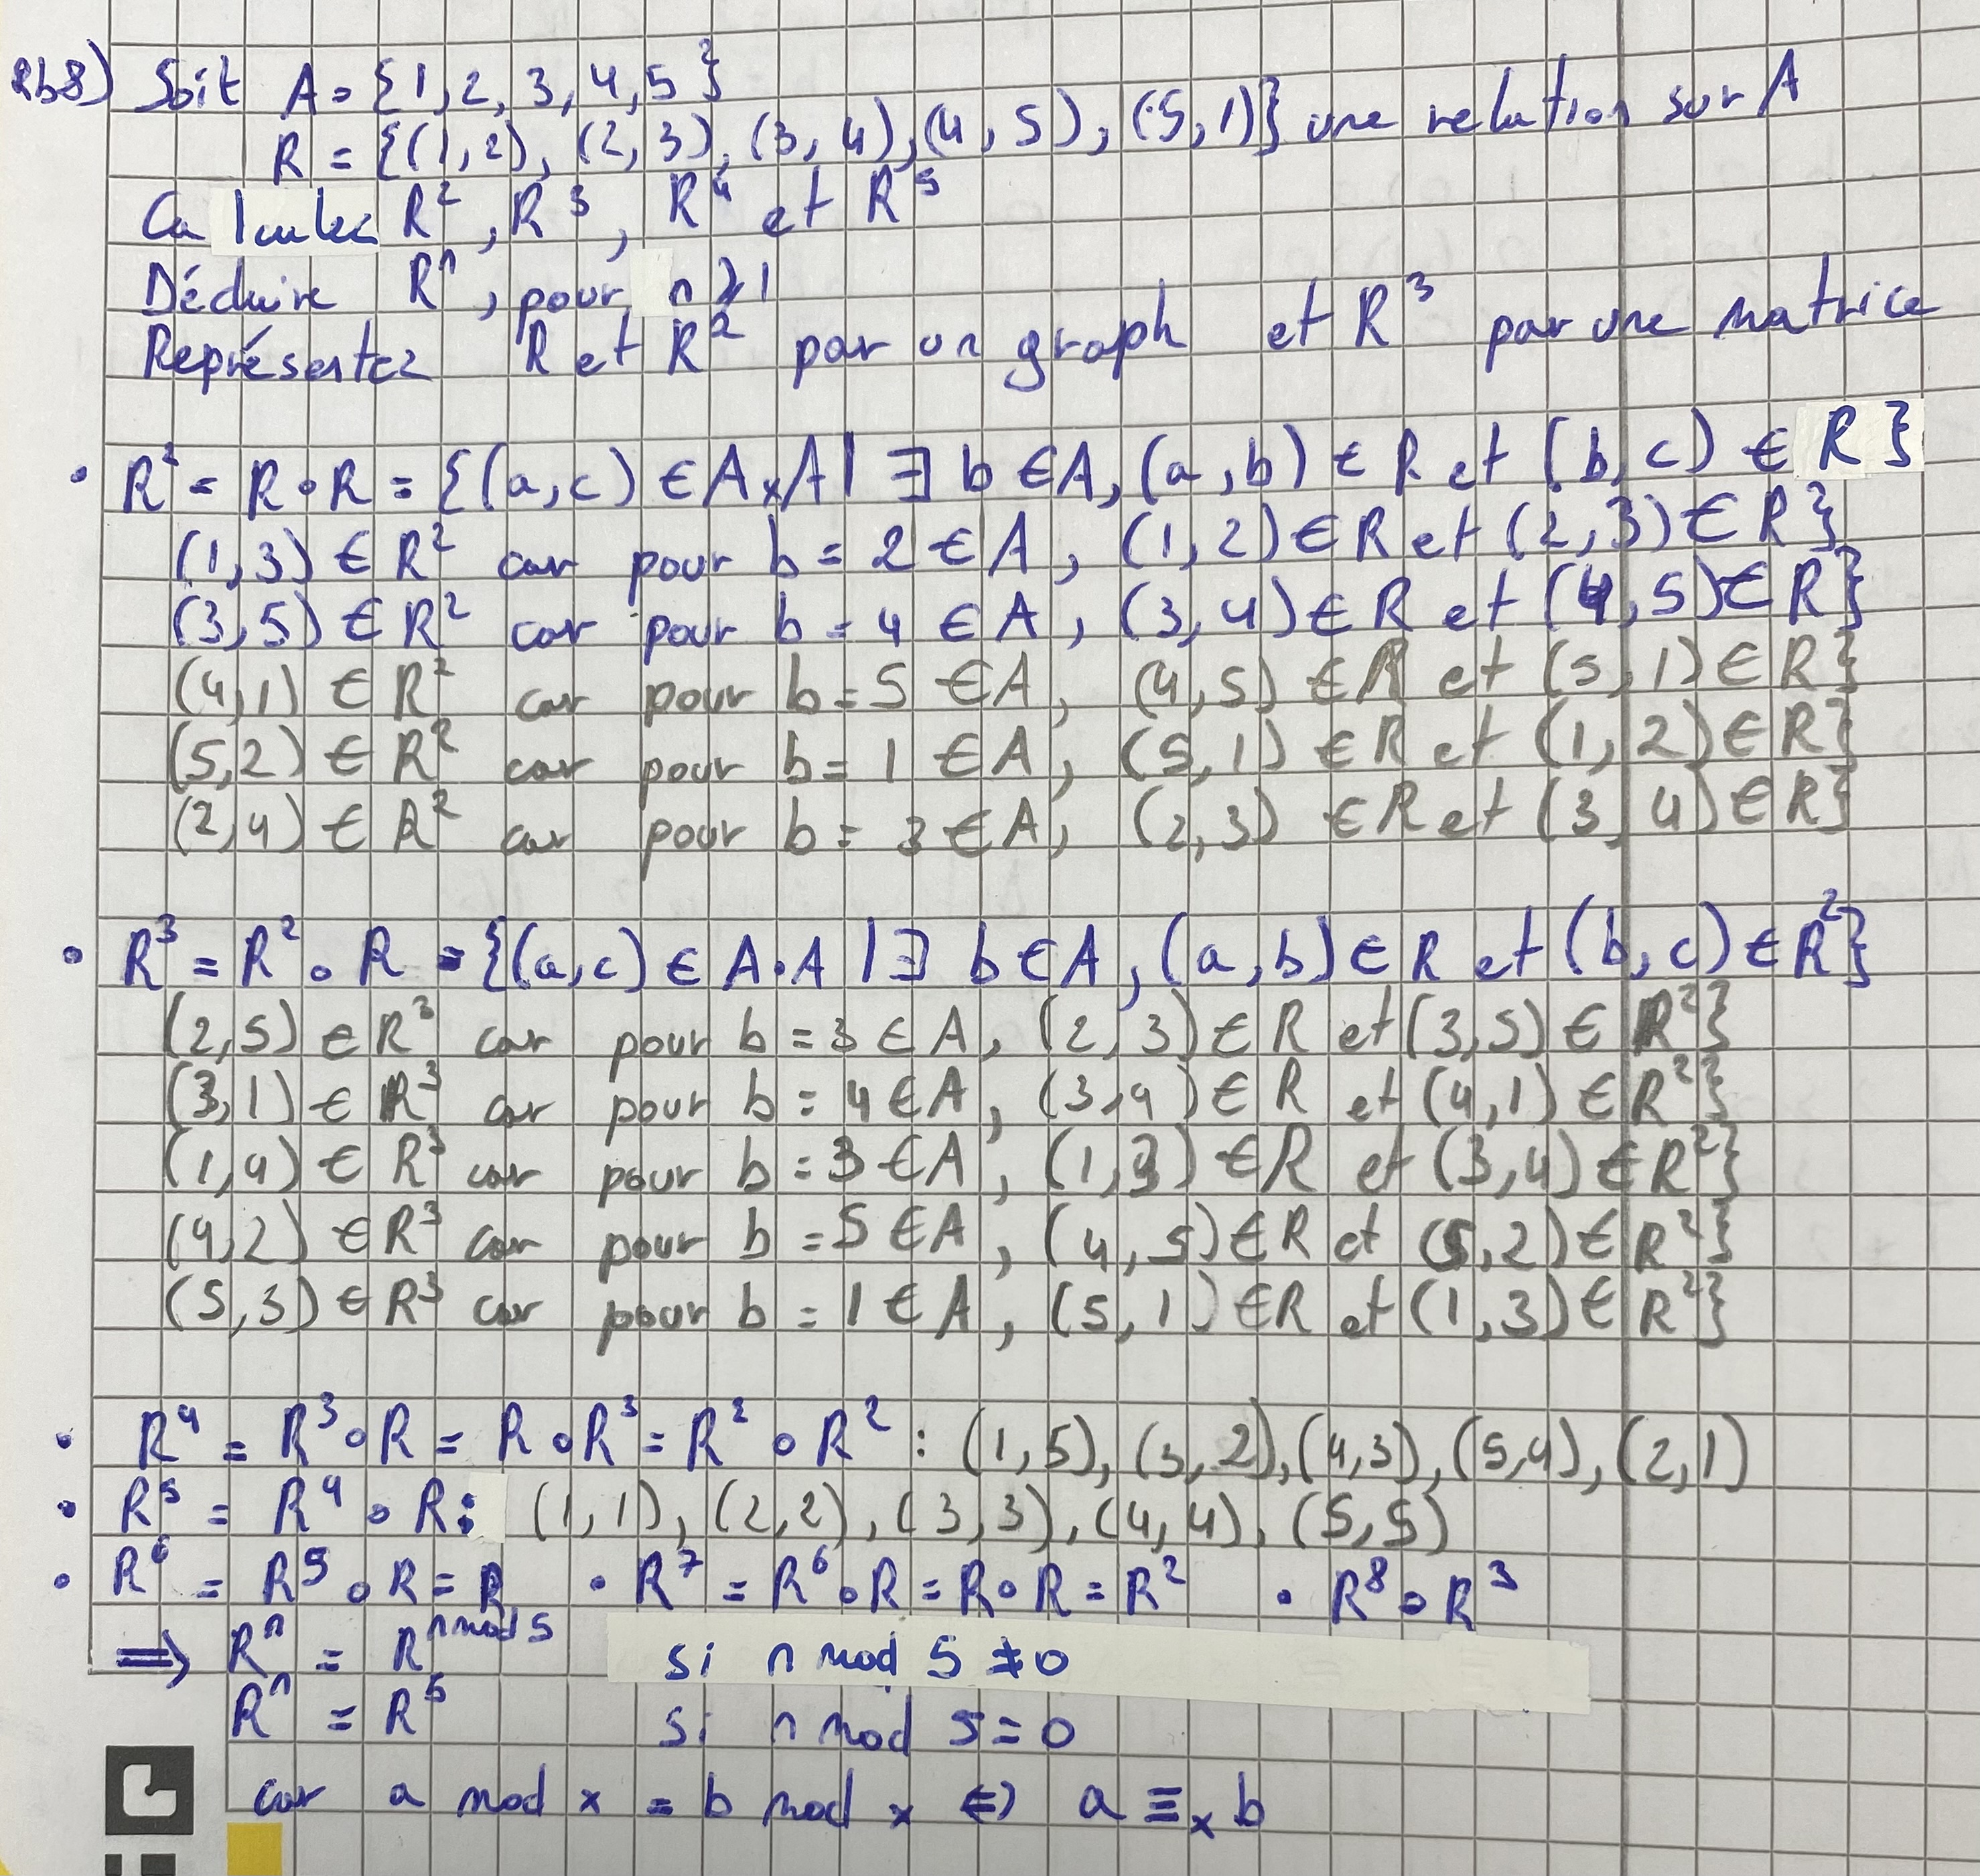 Rb8) Soit A = {1,2,3,4,5}
R = {(1,2), (2,3), (3,4), (4,5), (5,1)} une relation sur A
Calculer R², R³, R⁴ et R⁵
Déduire Rⁿ, pour n ≥ 1
Représentez R et R² par un graph et R³ par une matrice
• R² = R∘R = {(a,c) ∈ A×A | ∃ b ∈ A, (a,b) ∈ R et (b,c) ∈ R}
(1,3) ∈ R² car pour b = 2 ∈ A, (1,2) ∈ R et (2,3) ∈ R}
(3,5) ∈ R² car pour b = 4 ∈ A, (3,4) ∈ R et (4,5) ∈ R}
(4,1) ∈ R² car pour b = 5 ∈ A, (4,5) ∈ R et (5,1) ∈ R}
(5,2) ∈ R² car pour b = 1 ∈ A, (5,1) ∈ R et (1,2) ∈ R}
(2,4) ∈ R² car pour b = 3 ∈ A, (2,3) ∈ R et (3,4) ∈ R}
• R³ = R² ∘ R = {(a,c) ∈ A·A | ∃ b ∈ A, (a,b) ∈ R et (b,c) ∈ R²}
(2,5) ∈ R³ car pour b = 3 ∈ A, (2,3) ∈ R et (3,5) ∈ R²}
(3,1) ∈ R³ car pour b = 4 ∈ A, (3,4) ∈ R et (4,1) ∈ R²}
(1,4) ∈ R³ car pour b = 3 ∈ A, (1,3) ∈ R et (3,4) ∈ R²}
(4,2) ∈ R³ car pour b = 5 ∈ A, (4,5) ∈ R et (5,2) ∈ R²}
(5,3) ∈ R³ car pour b = 1 ∈ A, (5,1) ∈ R et (1,3) ∈ R²}
• R⁴ = R³∘R = R∘R³ = R² ∘ R² : (1,5), (3,2), (4,3), (5,4), (2,1)
• R⁵ = R⁴ ∘ R : (1,1), (2,2), (3,3), (4,4), (5,5)
• R⁶ = R⁵ ∘ R = R • R⁷ = R⁶∘R = R∘R = R² • R⁸ = R³
⟹ Rⁿ = Rⁿ ᵐᵒᵈ ⁵ si n mod 5 ≠ 0
Rⁿ = R⁵ si n mod 5 = 0
car a mod x = b mod x ⇔ a ≡ₓ b